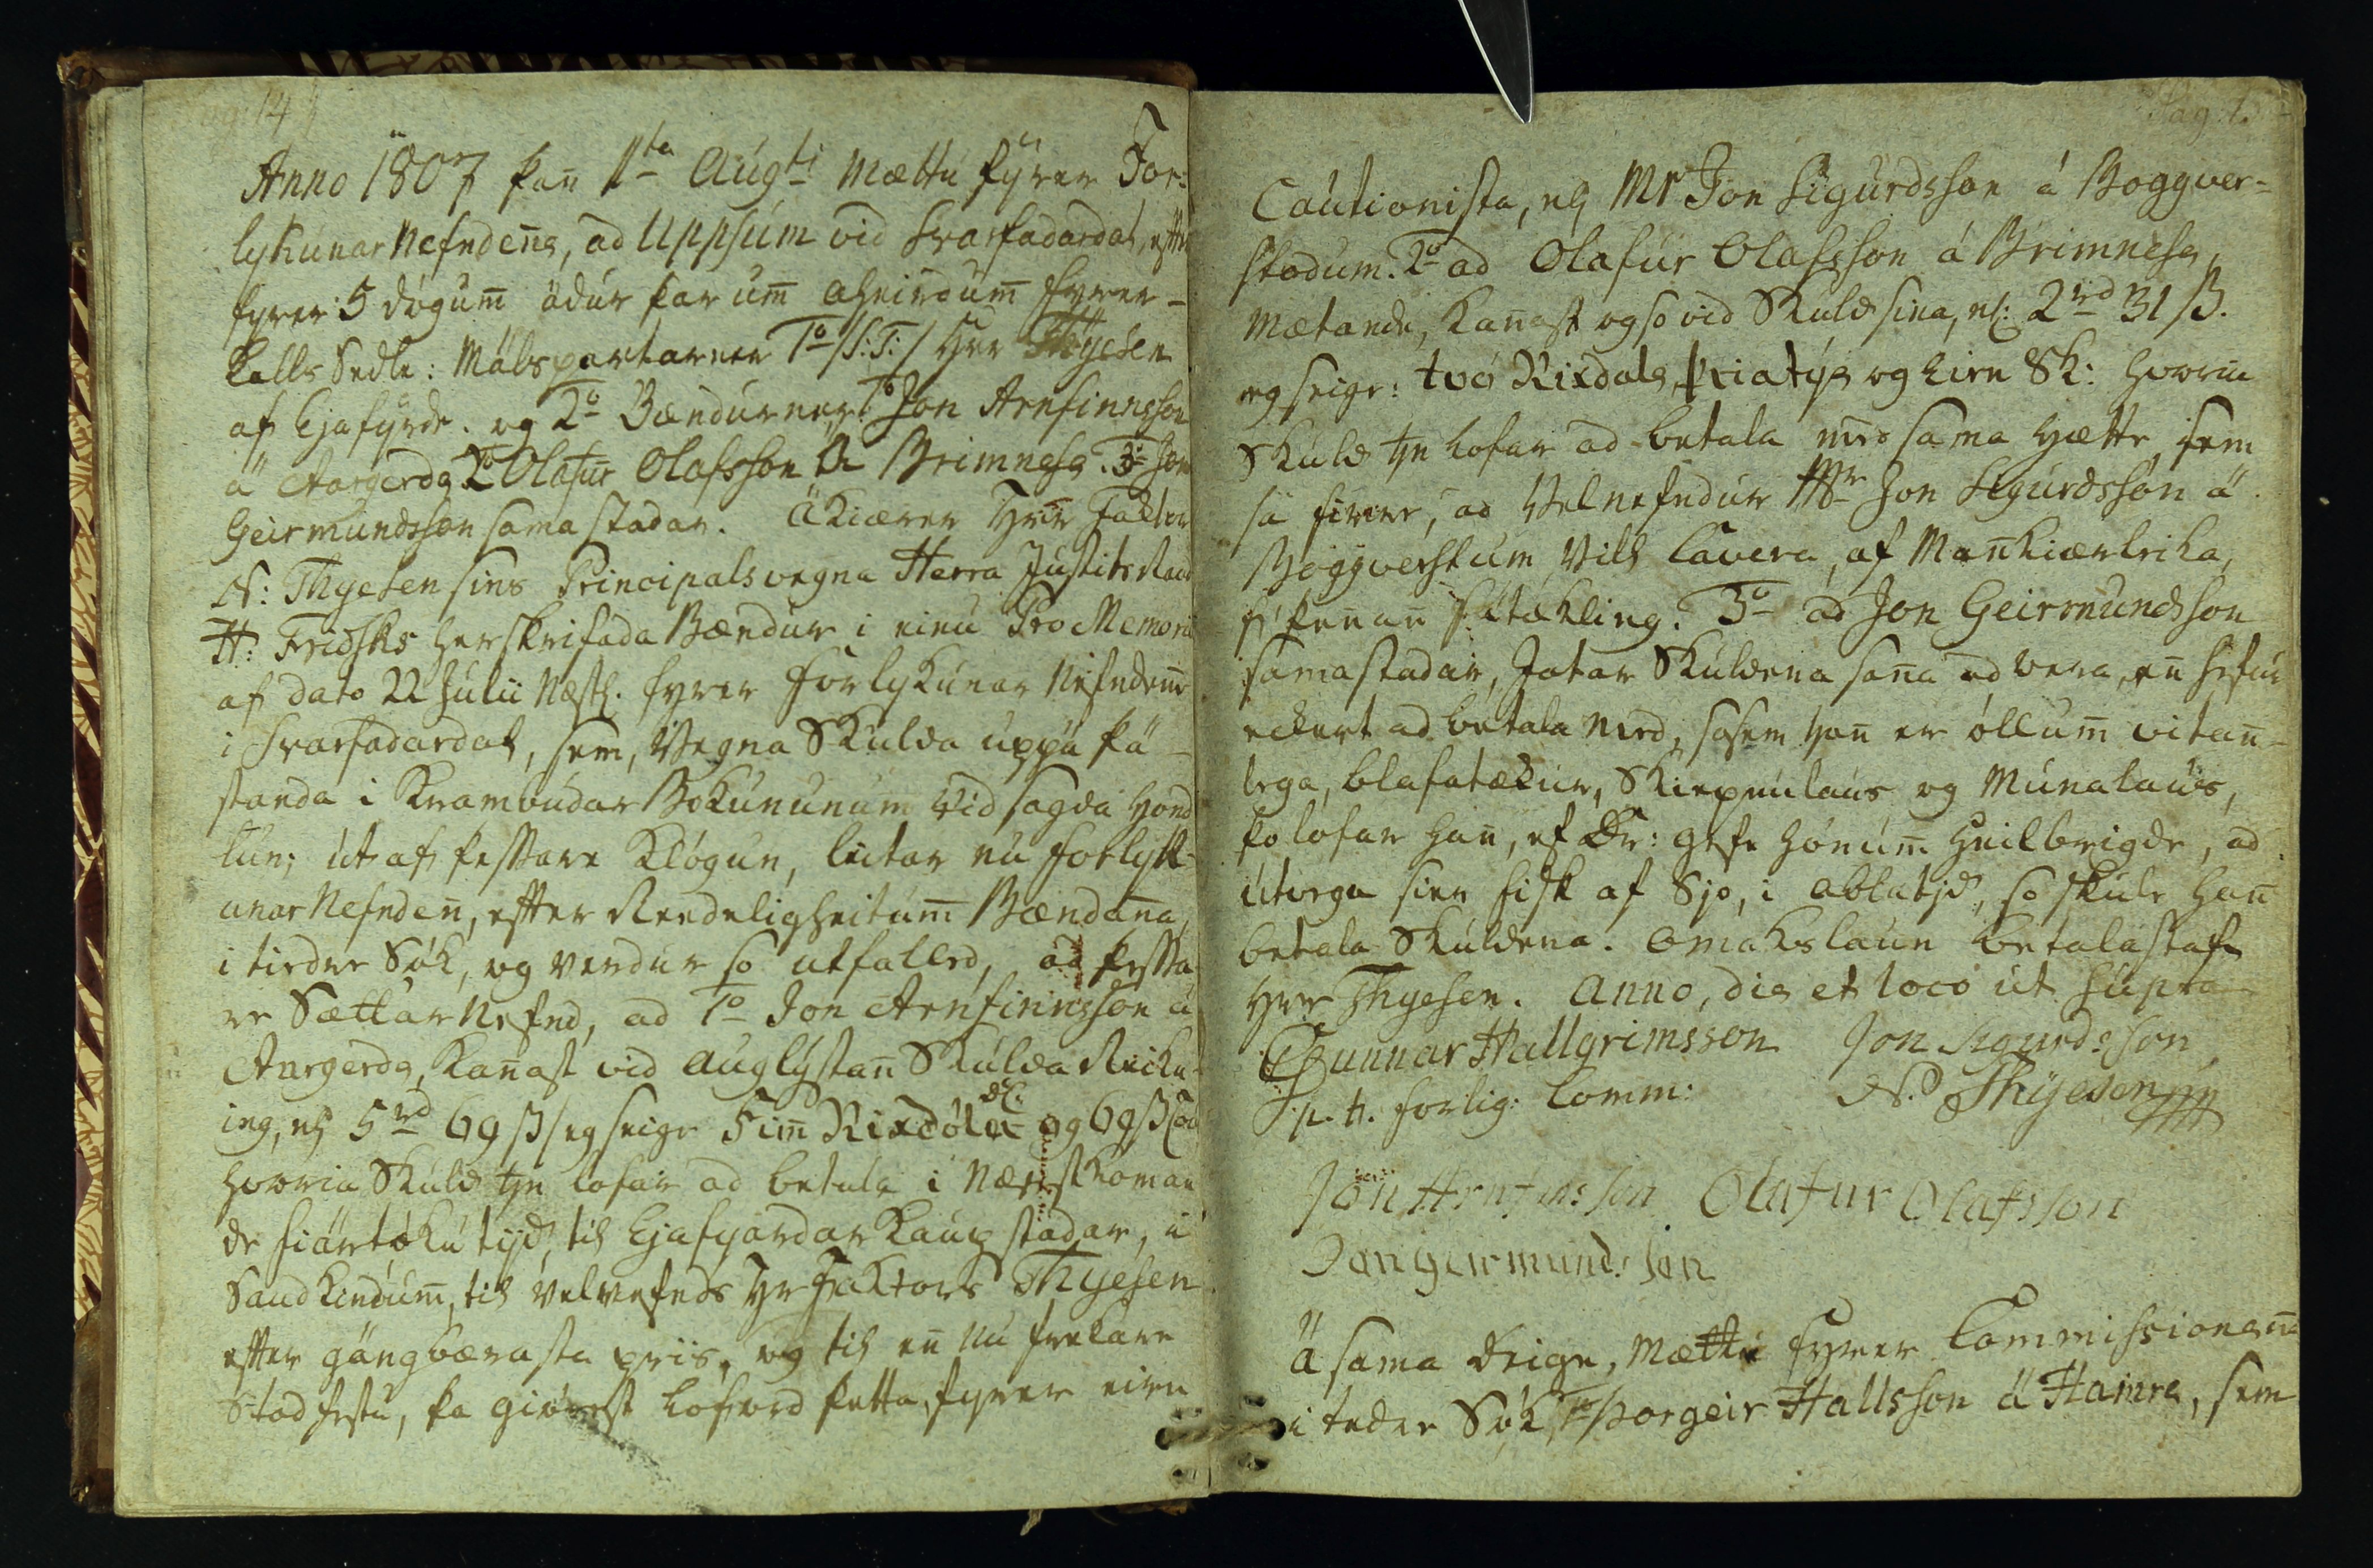 Pag: 14
Anno 1807 þan̄ 1ta Augti mættu fyrer For-
lykunar Nefndeñe, ad Uppsum vid Svarfadardal, efter
fyrer 5 døgum̄ ädur þar um̄ aheirdum̄ fyrer-
kalls Sedle: Mälspartarner 1o /S:T:/ Hrr Thyesen
af Eyafyrde. og 2o Bændurner, 1o Jon Arnfinnsson
ä Aargerde 2o Olafur Olafsson ä Brimnese. 3o Jon
Geirmundsson sama stadar. Äkiærer Herr Factor
N: Thyesen sins Principals vegna Herra Justits Raad
H: Fridsks herskrifada Bændur i einu Pro Memoria
af dato 22 Julii Næstl. fyrer Forlykunar Nefndeñe
i Svarfadardal, sem, Vegna Skulda uppä þä-
standa i Krambudar Bokununum Vid sagda Hønd-
lun; ut af þessare Kløgun, leitar nu Forlyk-
unar Nefnden̄, efter Reedeligheitum̄ Bændan̄a,
i tiedre Søk, og verdur so utfalled, ad þessa-
re Sættar Nefnd, ad 1o Jon Arnfinnsson ä
Aargerde, kan̄ast vid auglystan̄ Skulda Reikn-
ing, nl. 5rd 69 ß /: eg seige Fim̄ Rixdale dl. og 69 ß Co
hvoria Skuld hn lofar ad betala i Næstkoman-
de fiärtøku tijd, til Eyafyardar Kaupstadar, i
Saudkindum̄, til velnefnds Hr Factors Thyesen
efter gängbærasta priis, og til en̄ nu frekare
Stadfestu, þa giørest loford þetta, fyrer eirn
Pag: 1
Cautionista, nl. Mr Jon Sigurdsson ä Boggver-
stødum. 2o ad Olafur Olafsson ä Brimnese,
Mætande, kan̄ast og so vid Skuld sina, nl: 2rd 31 ß.
eg seige: tvo Rixdale, þriatyu og eirn Sk: hvoria
Skuld hn lofar ad betala med sama Hætte, sem
sä firre, ad Velnefndur Mr Jon Sigurdsson ä
Boggverstum Vill Cavera, af Man̄kiærleika,
fi þen̄an̄ fätækling. 3o ad Jon Geirmundsson
samastadar, Jatar Skuldena san̄a ad vera, en̄ hefur
eckert ad betala med, so sem han̄ er øllum̄ vitan̄-
lega, blafatækur, Skiepnulaus og Munalaus,
þo lofar han̄, ef Dr: gefe hønum̄ Heilbrigde, ad
utvega sier fisk af Sjo, i ablatijd, so skule han̄
betala Skuldena. Omakslaun betalast af
Hrr Thyesen. Anno, die et loco ut supra
Gunnar Hallgrimsson Jon Sigurdsson
p. t. forlig: Comm: N. Thyesen
Jön Arnfinsson Olafur Olafsson
Jon Geirmundsson
Ä sama deige, Mættu fyrer Commissionen̄e
i tedre Søk, 1o Þorgeir Hallsson ä Hamre, sem